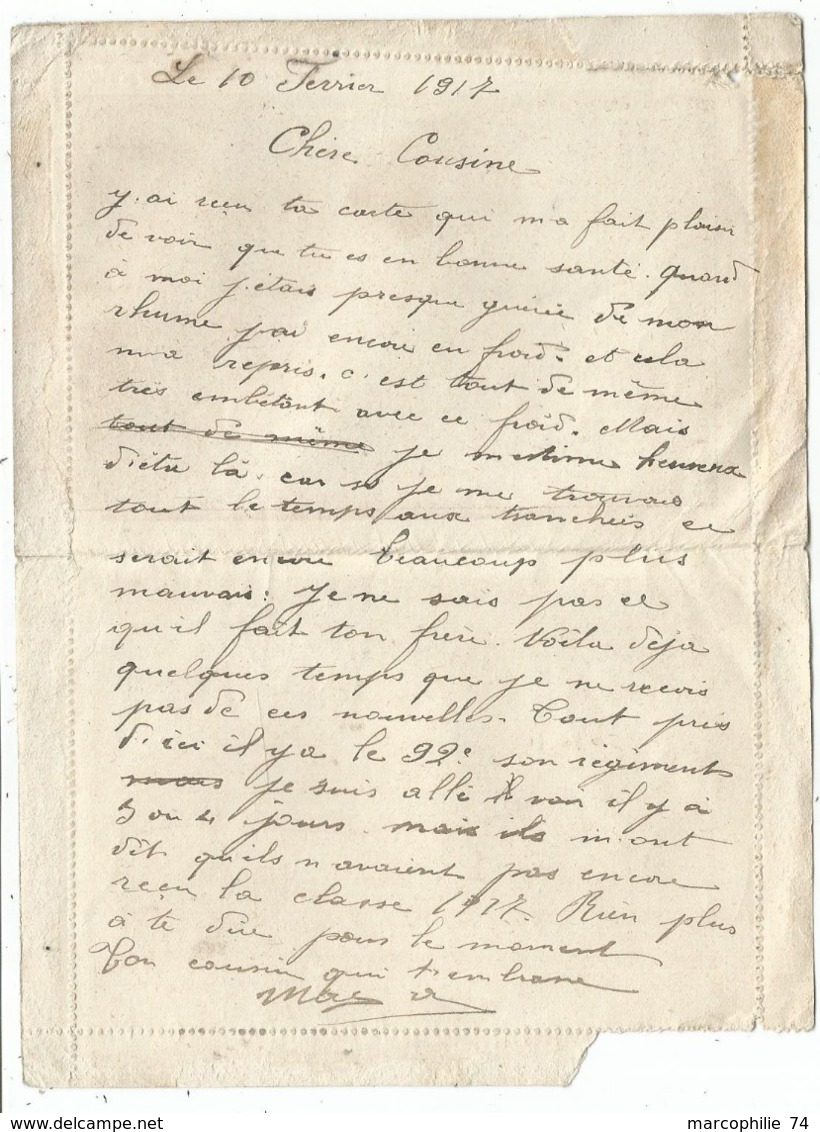 Le 10 Fevrier 1917
Chère Cousine
y.ai reçu ta carte qui m'a fait plaisir
de voir que tu es en bonne santé. Quand
à moi j'étais presque guérie de mon
rhume j'ai encore eu froid. et cela
m'a repris. c'est tout de même
très embêtant avec ce froid. Mais
tout de même je mestime heureux
d'être là. car si je me trouvais
tout le temps aux tranchées ce
serait encore beaucoup plus
mauvais. Je ne sais pas ce
qu'il fait ton frère. Voila deja
quelques temps que je ne recois
pas de ces nouvelles. Tout près
d'ici il y a le 92e son régiment
mais je suis allé voir il y à
3 ou 4 jours. mais ils m'ont
dit qu'ils n'avaient pas encore
reçu la classe 1917. Rien plus
à te dire pour le moment
Ton cousin qui t'embrasse
delcampe.net
marcophilie 74